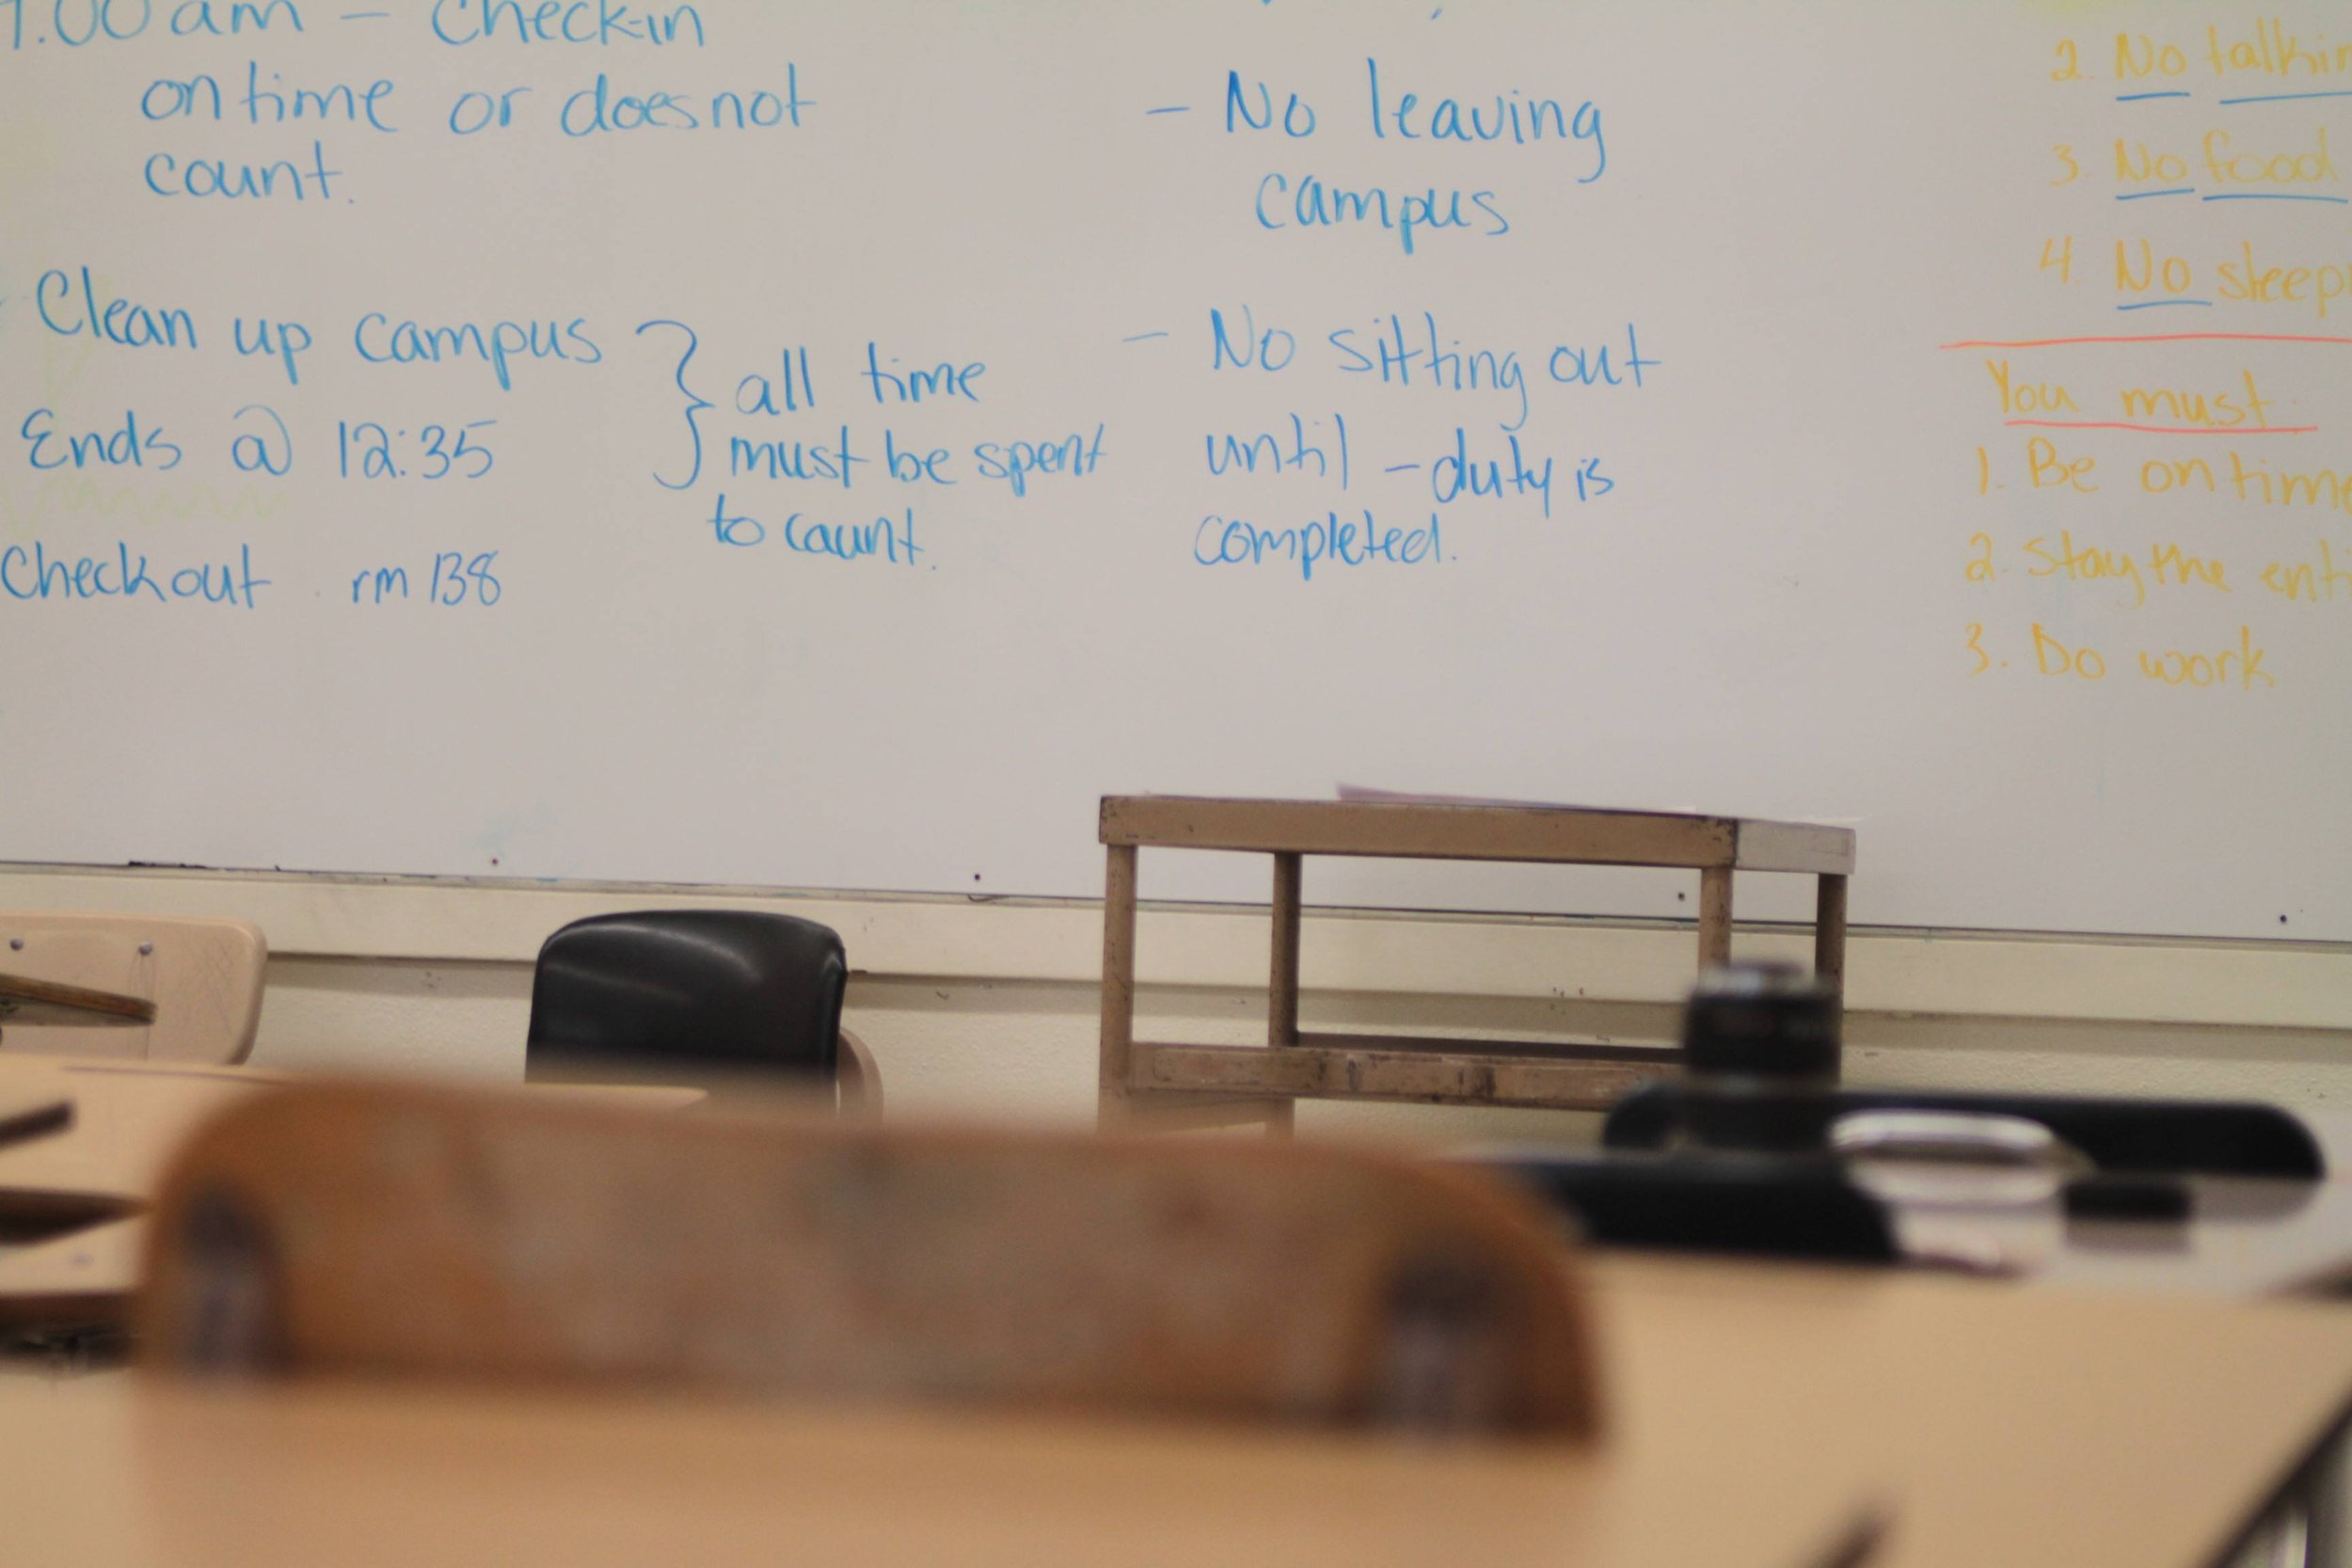 :00 am – Check-in
on time or does not
count.
Clean up campus
Ends @ 12:35
} all time
must be spent
to count.
Checkout rm 138
– No leaving
campus
– No sitting out
until – duty is
completed.
2. No talkin
3. No food
4. No sleep
You must:
1. Be on time
2. Stay the enti
3. Do work